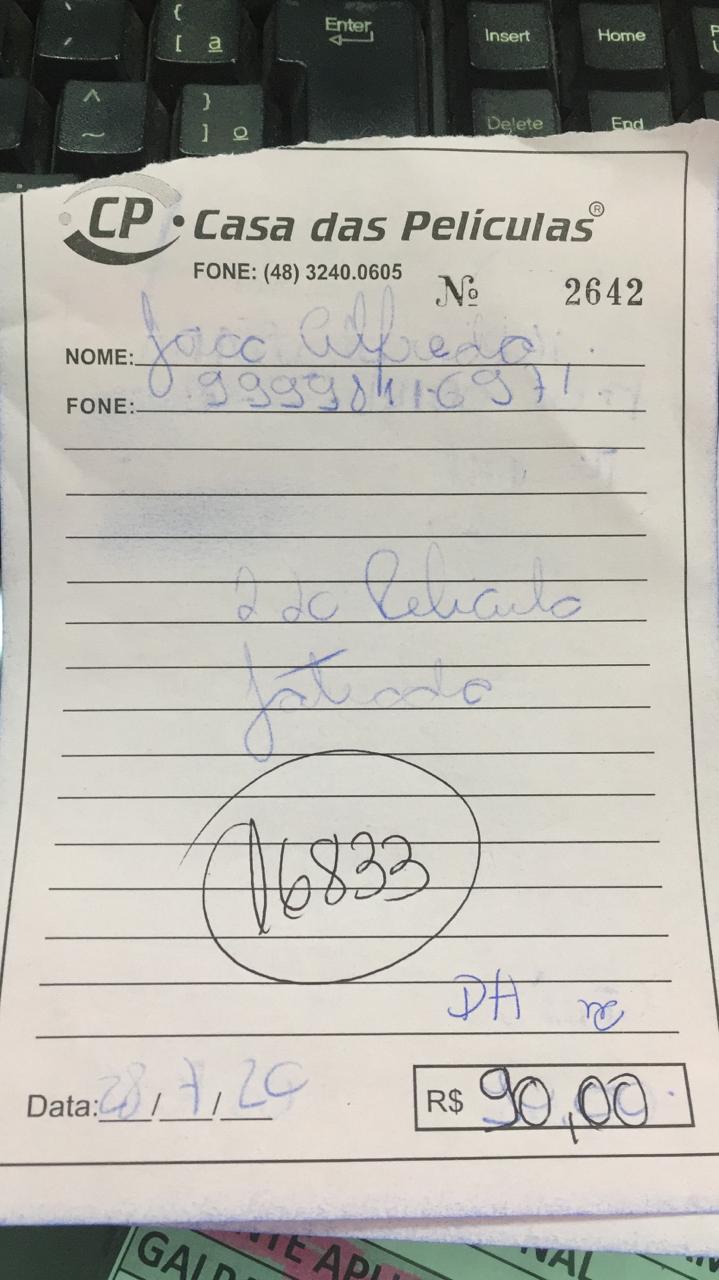 {
[ a
Enter
Insert
Home
^
~
}
] o
Delete
End
CP • Casa das Películas®
FONE: (48) 3240.0605
Nº 2642
NOME: Joao Alfredo
FONE:
Pelicula
Jateada
16833
DH
Data: 28/7/20
R$ 90,00